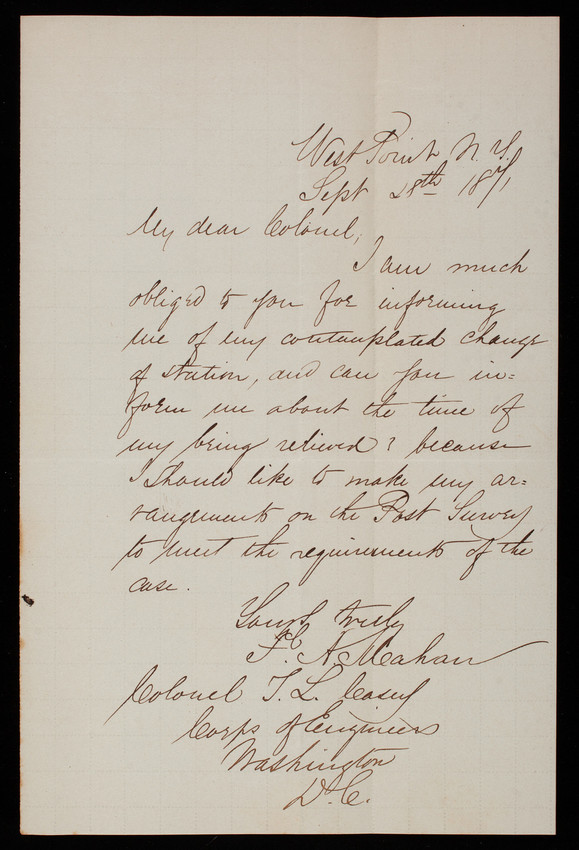 West Point N.Y.
Sept 28th 1871
My dear Colonel,
I am much
obliged to you for informing
me of my contemplated change
of station, and can you in=
form me about the time of
my being relieved? because
I should like to make my ar=
rangements on the Post Survey
to meet the requirements of the
case.
Yours truly
F. A. Mahan
Colonel T. L. Casey
Corps of Engineers
Washington
D.C.